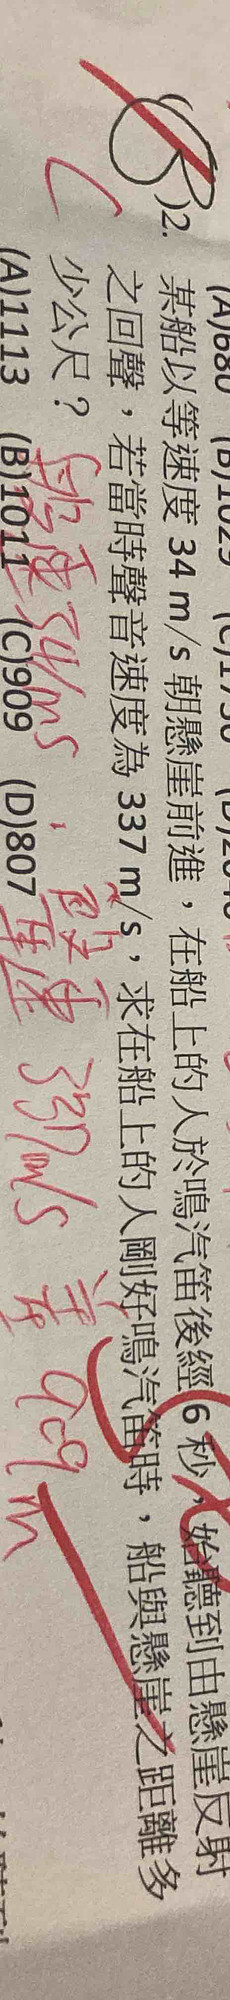 (B)2. 某船以等速度 34 m/s 朝懸崖前進，在船上的人於鳴汽笛後經 6 秒，始聽到由懸崖反射
之回聲，若當時聲音速度為 337 m/s，求在船上的人剛好鳴汽笛時，船與懸崖之距離多
少公尺？
(A)1113 (B)1011 (C)909 (D)807
C
船速 34m/s，聲速 337m/s 差 909 m